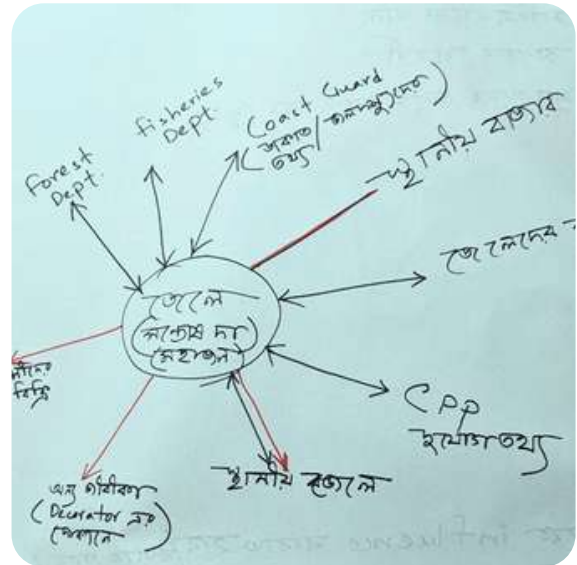 Forest
Dept.
Fisheries
Dept.
Coast Guard
(ডাকাত/জলদস্যুদের)
তথ্য
স্থানীয় বাজার
জেলেদের
জেলে
(সন্তোষ দা)
মহাজন
CPP
দুর্যোগ তথ্য
স্থানীয় জেলে
অন্য জীবিকা
(Decorator এর
দোকানে)
বিক্রি